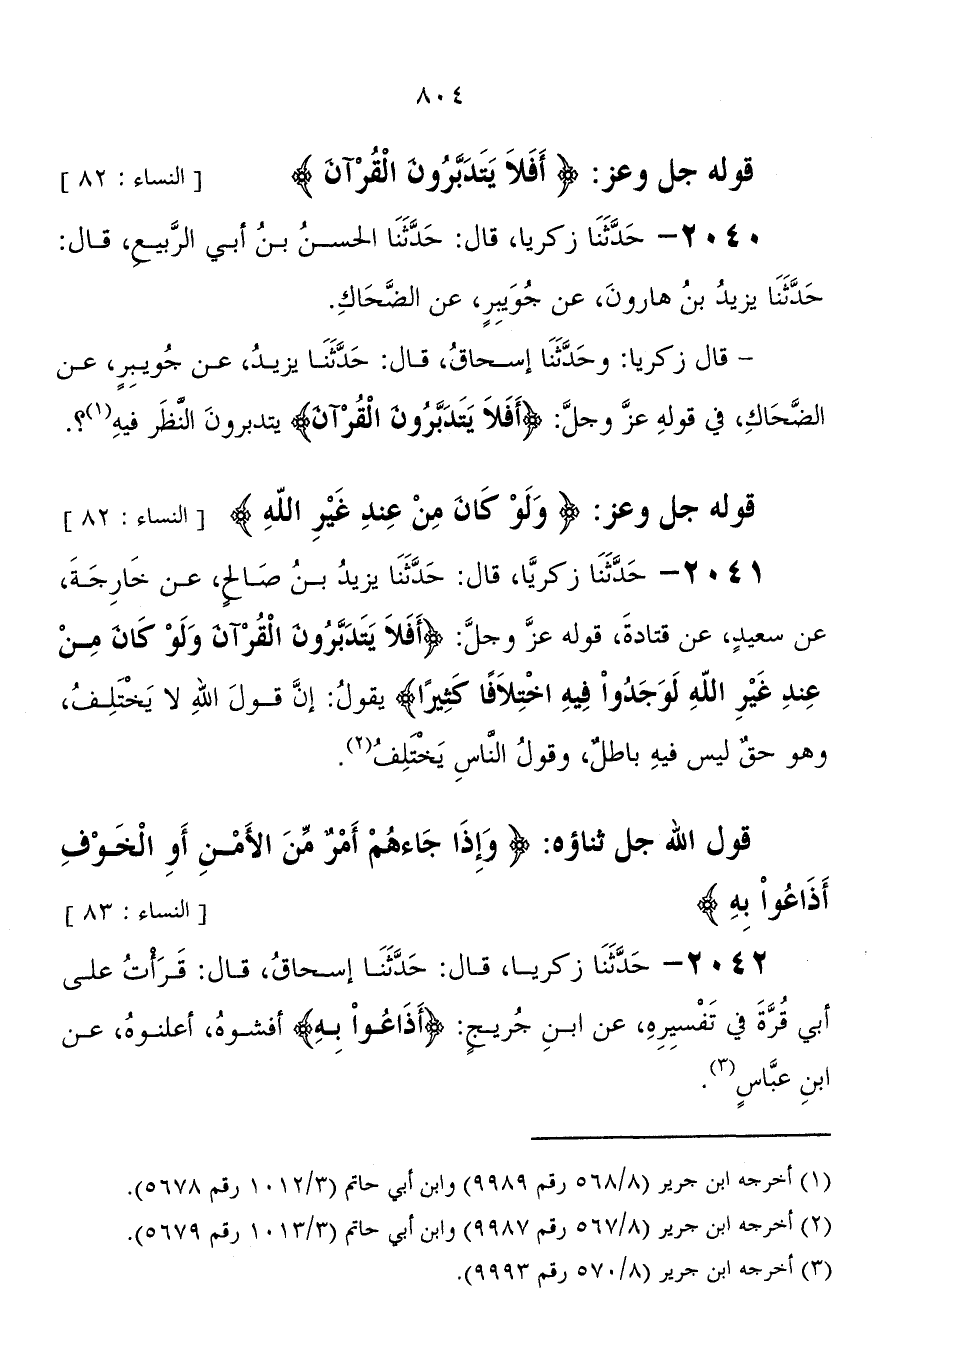 ٨٠٤
قوله جل وعز: ﴿ أَفَلاَ يَتَدَبَّرُونَ الْقُرْآنَ ﴾ [ النساء : ٨٢ ]
٢٠٤٠- حَدَّثَنَا زكريا، قال: حَدَّثَنَا الحسنُ بنُ أبي الرَّبيعِ، قال:
حَدَّثَنَا يزيدُ بنُ هارونَ، عن جُوَيبِرٍ، عن الضَّحَاكِ.
- قال زكريا: وحَدَّثَنَا إسحاقُ، قال: حَدَّثَنَا يزيدُ، عن جُويبِرٍ، عن
الضَّحَاكِ، في قولهِ عزَّ وجلَّ: ﴿أَفَلاَ يَتَدَبَّرُونَ الْقُرْآنَ﴾ يتدبرونَ النَّظَر فيهِ(١)؟.
قوله جل وعز: ﴿ وَلَوْ كَانَ مِنْ عِندِ غَيْرِ اللّهِ ﴾ [ النساء : ٨٢ ]
٢٠٤١- حَدَّثَنَا زكريَّا، قال: حَدَّثَنَا يزيدُ بنُ صَالحٍ، عن خَارِجَةَ،
عن سعيدٍ، عن قتادةَ، قوله عزَّ وجلَّ: ﴿أَفَلاَ يَتَدَبَّرُونَ الْقُرْآنَ وَلَوْ كَانَ مِنْ
عِندِ غَيْرِ اللّهِ لَوَجَدُواْ فِيهِ اخْتِلاَفًا كَثِيرًا﴾ يقولُ: إنَّ قولَ اللهِ لا يَخْتَلِفُ،
وهو حقٌ ليس فيهِ باطلٌ، وقولُ النَّاسِ يَخْتَلِفُ(٢).
قول الله جل ثناؤه: ﴿ وَإِذَا جَاءهُمْ أَمْرٌ مِّنَ الأَمْنِ أَوِ الْخَوْفِ
أَذَاعُواْ بِهِ ﴾ [ النساء : ٨٣ ]
٢٠٤٢- حَدَّثَنَا زكريا، قال: حَدَّثَنَا إسحاقُ، قال: قَرَأْتُ على
أبي قُرَّةَ في تَفْسِيرِهِ، عن ابنِ جُريجٍ: ﴿أَذَاعُواْ بِهِ﴾ أفشوهُ، أعلنوهُ، عن
ابنِ عبَّاسٍ(٣).
(١) أخرجه ابن جرير (٥٦٨/٨ رقم ٩٩٨٩) وابن أبي حاتم (١٠١٢/٣ رقم ٥٦٧٨).
(٢) أخرجه ابن جرير (٥٦٧/٨ رقم ٩٩٨٧) وابن أبي حاتم (١٠١٣/٣ رقم ٥٦٧٩).
(٣) أخرجه ابن جرير (٥٧٠/٨ رقم ٩٩٩٣).